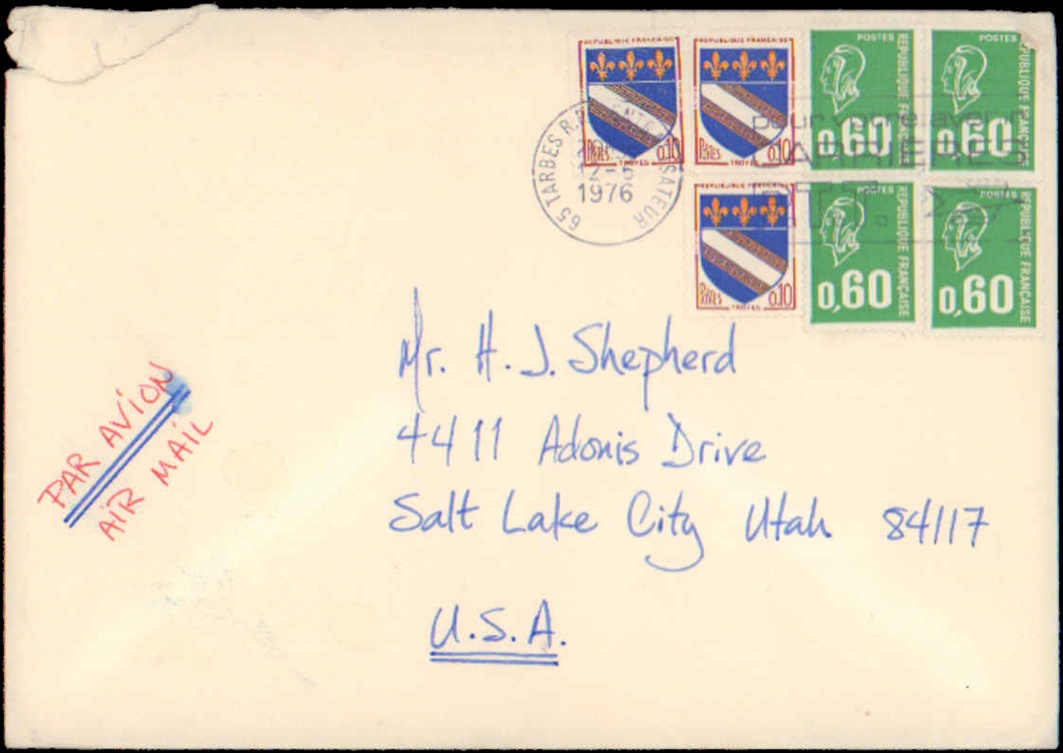 REPUBLIQUE FRANCAISE
Postes 0,10
TROYES
REPUBLIQUE FRANCAISE
Postes 0,10
TROYES
POSTES
REPUBLIQUE FRANÇAISE
0,60
POSTES
REPUBLIQUE FRANÇAISE
0,60
65 TARBES R.P.
1976
pour votre avenir
REPUBLIQUE FRANCAISE
Postes 0,10
TROYES
POSTES
REPUBLIQUE FRANÇAISE
0,60
POSTES
REPUBLIQUE FRANÇAISE
0,60
Mr. H. J. Shepherd
4411 Adonis Drive
Salt Lake City Utah 84117
U.S.A.
PAR AVION
AIR MAIL